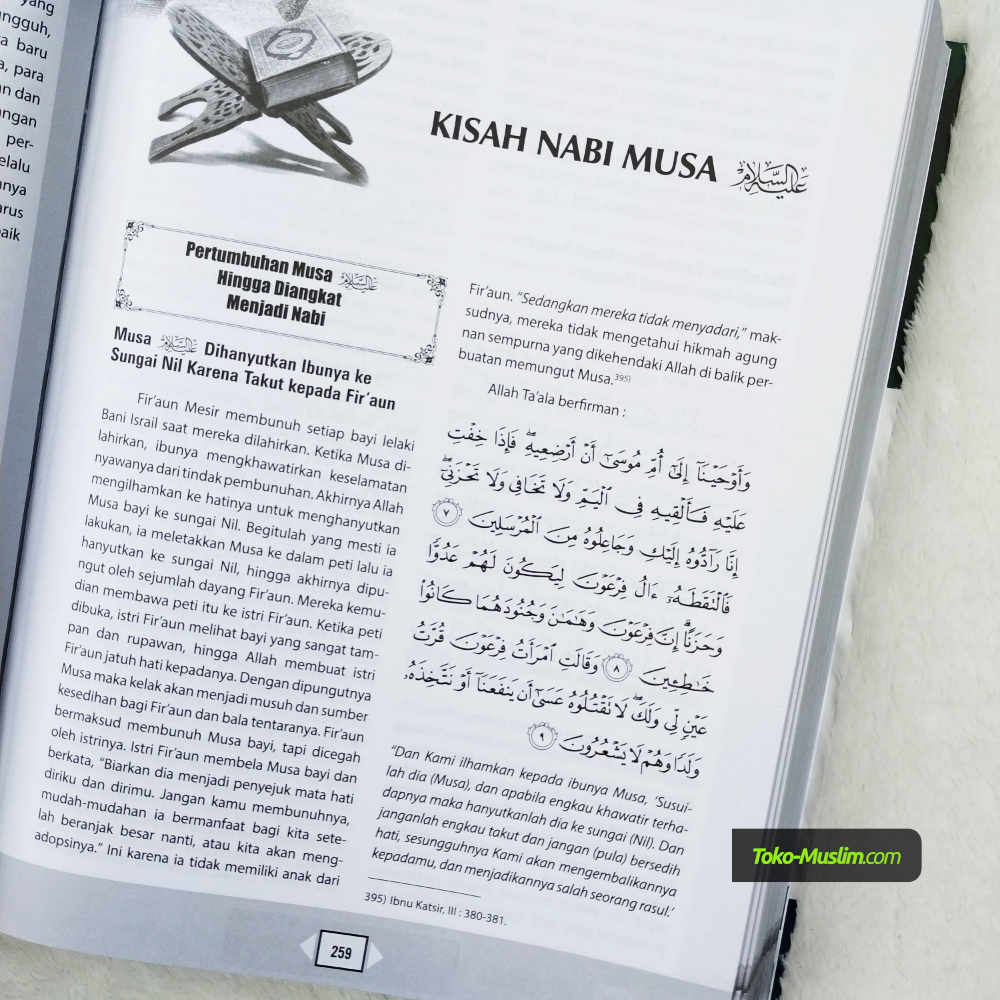 yang
ngguh,
a baru
a, para
n dan
ngan
per-
elalu
nnya
arus
baik
KISAH NABI MUSA عليه السلام
Pertumbuhan Musa عليه السلام
Hingga Diangkat
Menjadi Nabi
Musa عليه السلام Dihanyutkan Ibunya ke
Sungai Nil Karena Takut kepada Fir'aun
Fir'aun Mesir membunuh setiap bayi lelaki
Bani Israil saat mereka dilahirkan. Ketika Musa di-
lahirkan, ibunya mengkhawatirkan keselamatan
nyawanya dari tindak pembunuhan. Akhirnya Allah
mengilhamkan ke hatinya untuk menghanyutkan
Musa bayi ke sungai Nil. Begitulah yang mesti ia
lakukan, ia meletakkan Musa ke dalam peti lalu ia
hanyutkan ke sungai Nil, hingga akhirnya dipu-
ngut oleh sejumlah dayang Fir'aun. Mereka kemu-
dian membawa peti itu ke istri Fir'aun. Ketika peti
dibuka, istri Fir'aun melihat bayi yang sangat tam-
pan dan rupawan, hingga Allah membuat istri
Fir'aun jatuh hati kepadanya. Dengan dipungutnya
Musa maka kelak akan menjadi musuh dan sumber
kesedihan bagi Fir'aun dan bala tentaranya. Fir'aun
bermaksud membunuh Musa bayi, tapi dicegah
oleh istrinya. Istri Fir'aun membela Musa bayi dan
berkata, "Biarkan dia menjadi penyejuk mata hati
diriku dan dirimu. Jangan kamu membunuhnya,
mudah-mudahan ia bermanfaat bagi kita sete-
lah beranjak besar nanti, atau kita akan meng-
adopsinya." Ini karena ia tidak memiliki anak dari
Fir'aun. "Sedangkan mereka tidak menyadari," mak-
sudnya, mereka tidak mengetahui hikmah agung
nan sempurna yang dikehendaki Allah di balik per-
buatan memungut Musa.395)
Allah Ta'ala berfirman :
وَأَوْحَيْنَآ إِلَىٰٓ أُمِّ مُوسَىٰٓ أَنْ أَرْضِعِيهِ ۖ فَإِذَا خِفْتِ
عَلَيْهِ فَأَلْقِيهِ فِى ٱلْيَمِّ وَلَا تَخَافِى وَلَا تَحْزَنِىٓ ۖ
إِنَّا رَآدُّوهُ إِلَيْكِ وَجَاعِلُوهُ مِنَ ٱلْمُرْسَلِينَ ٧
فَٱلْتَقَطَهُۥٓ ءَالُ فِرْعَوْنَ لِيَكُونَ لَهُمْ عَدُوًّا
وَحَزَنًا ۗ إِنَّ فِرْعَوْنَ وَهَٰمَٰنَ وَجُنُودَهُمَا كَانُوا۟
خَٰطِـِٔينَ ٨ وَقَالَتِ ٱمْرَأَتُ فِرْعَوْنَ قُرَّتُ
عَيْنٍ لِّى وَلَكَ ۖ لَا تَقْتُلُوهُ عَسَىٰٓ أَن يَنفَعَنَآ أَوْ نَتَّخِذَهُۥ
وَلَدًا وَهُمْ لَا يَشْعُرُونَ ٩
"Dan Kami ilhamkan kepada ibunya Musa, 'Susui-
lah dia (Musa), dan apabila engkau khawatir terha-
dapnya maka hanyutkanlah dia ke sungai (Nil). Dan
janganlah engkau takut dan jangan (pula) bersedih
hati, sesungguhnya Kami akan mengembalikannya
kepadamu, dan menjadikannya salah seorang rasul.'
395) Ibnu Katsir, III : 380-381.
259
Toko-Muslim.com